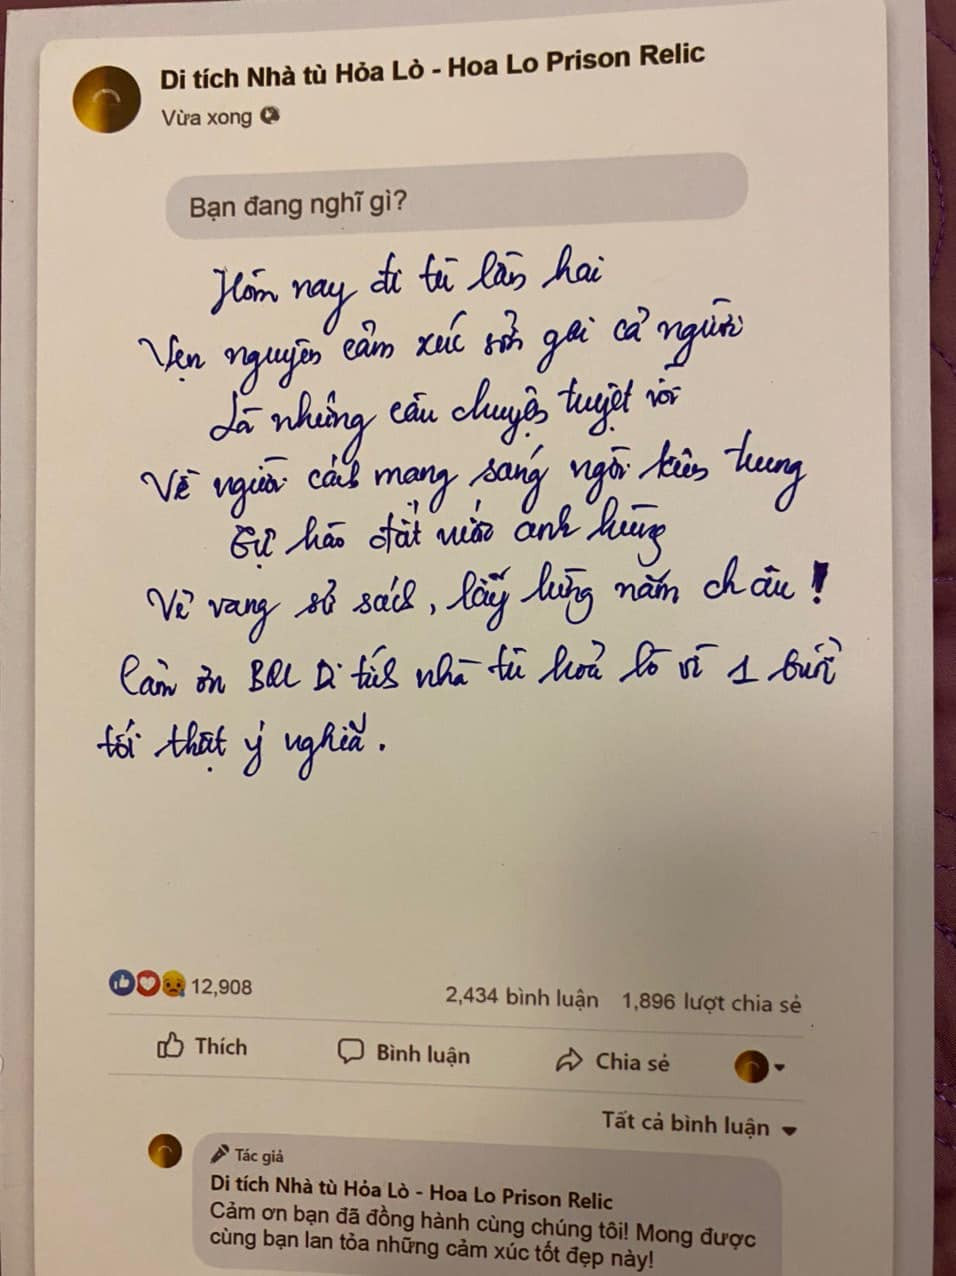 Di tích Nhà tù Hỏa Lò - Hoa Lo Prison Relic
Vừa xong
Bạn đang nghĩ gì?
Hôm nay đi tù lần hai
Vẹn nguyên cảm xúc sởn gai cả người
Là những câu chuyện tuyệt vời
Về người cách mạng sáng ngời kiên trung
Tự hào đất nước anh hùng
Vẻ vang sử sách, lẫy lừng năm châu!
Cảm ơn BQL Di tích nhà tù hoả lò vì 1 buổi
tối thật ý nghĩa.
12,908
2,434 bình luận 1,896 lượt chia sẻ
Thích Bình luận Chia sẻ
Tất cả bình luận
Tác giả
Di tích Nhà tù Hỏa Lò - Hoa Lo Prison Relic
Cảm ơn bạn đã đồng hành cùng chúng tôi! Mong được
cùng bạn lan tỏa những cảm xúc tốt đẹp này!